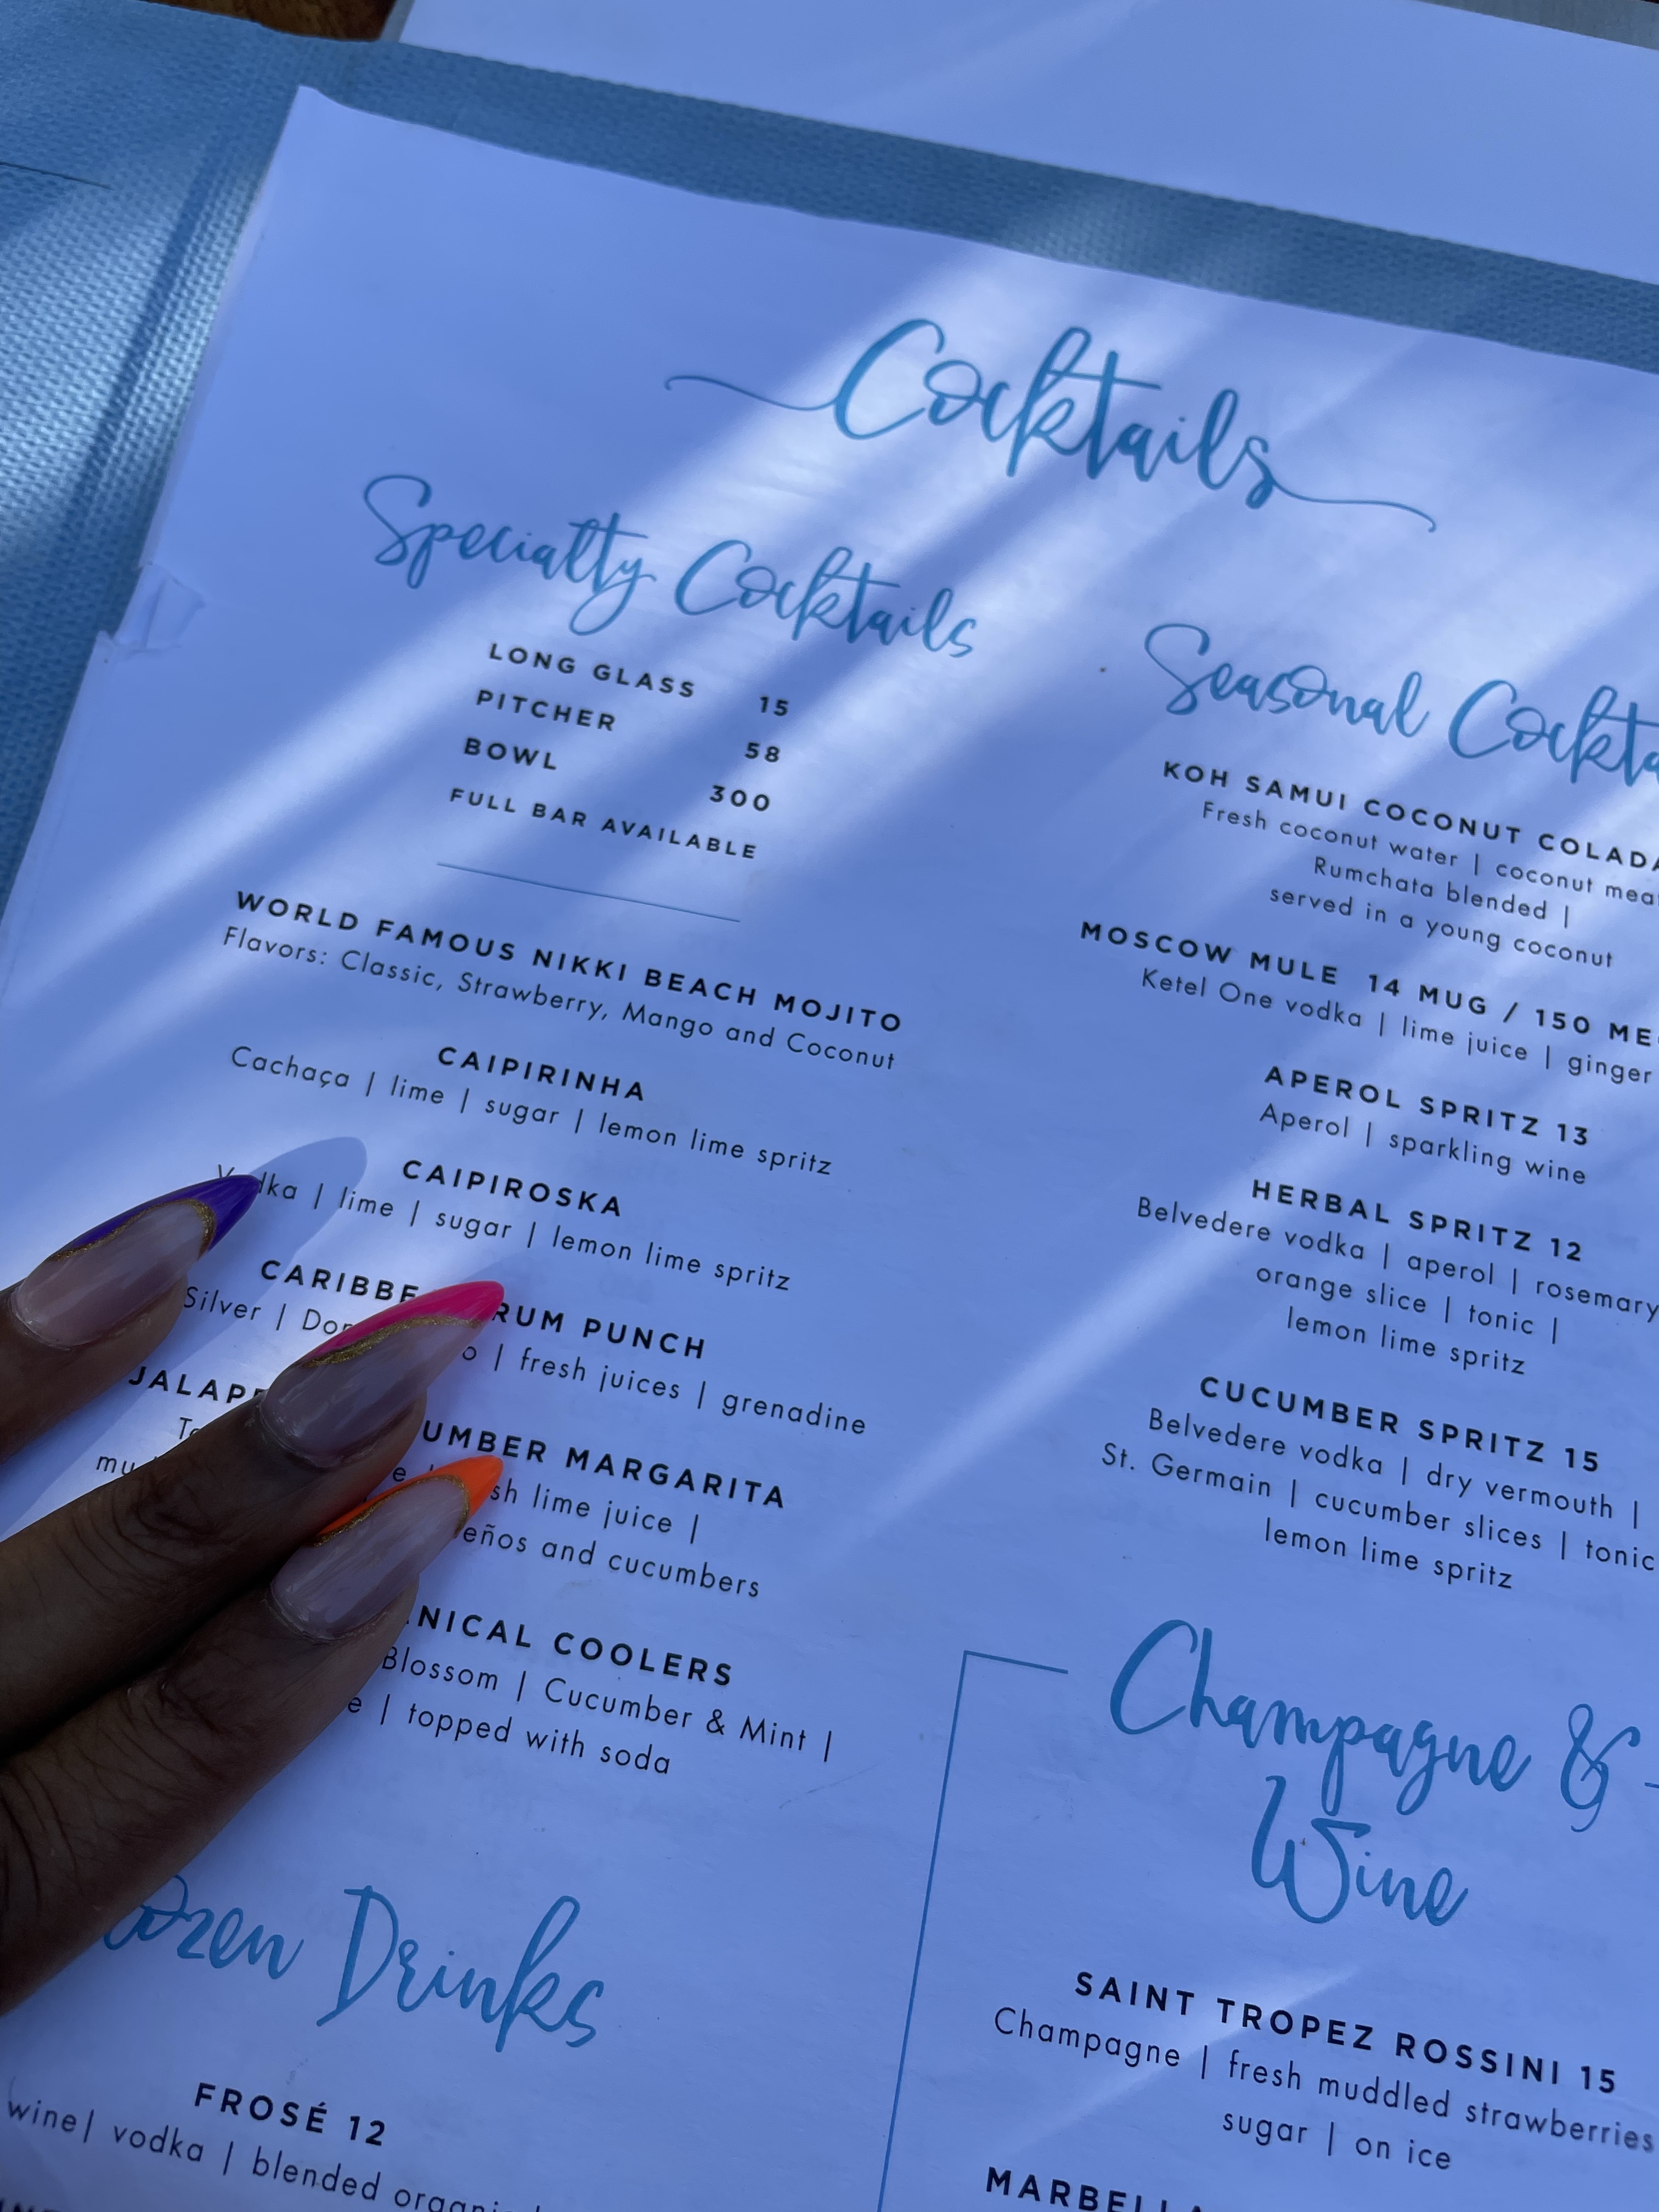 Cocktails
Specialty Cocktails
LONG GLASS 15
PITCHER 58
BOWL 300
FULL BAR AVAILABLE
WORLD FAMOUS NIKKI BEACH MOJITO
Flavors: Classic, Strawberry, Mango and Coconut
CAIPIRINHA
Cachaça | lime | sugar | lemon lime spritz
CAIPIROSKA
| lime | sugar | lemon lime spritz
RUM PUNCH
Silver | | fresh juices | grenadine
MARGARITA
lime juice |
and cucumbers
COOLERS
Blossom | Cucumber & Mint |
| topped with soda
Drinks
FROSÉ 12
wine| vodka | blended
Seasonal
KOH SAMUI COCONUT COLADA
Fresh coconut water | coconut
Rumchata blended |
served in a young coconut
MOSCOW MULE 14 MUG / 150
Ketel One vodka | lime juice | ginger
APEROL SPRITZ 13
Aperol | sparkling wine
HERBAL SPRITZ 12
Belvedere vodka | aperol | rosemary
orange slice | tonic |
lemon lime spritz
CUCUMBER SPRITZ 15
Belvedere vodka | dry vermouth |
St. Germain | cucumber slices | tonic
lemon lime spritz
Champagne &
Wine
SAINT TROPEZ ROSSINI 15
Champagne | fresh muddled strawberries
sugar | on ice